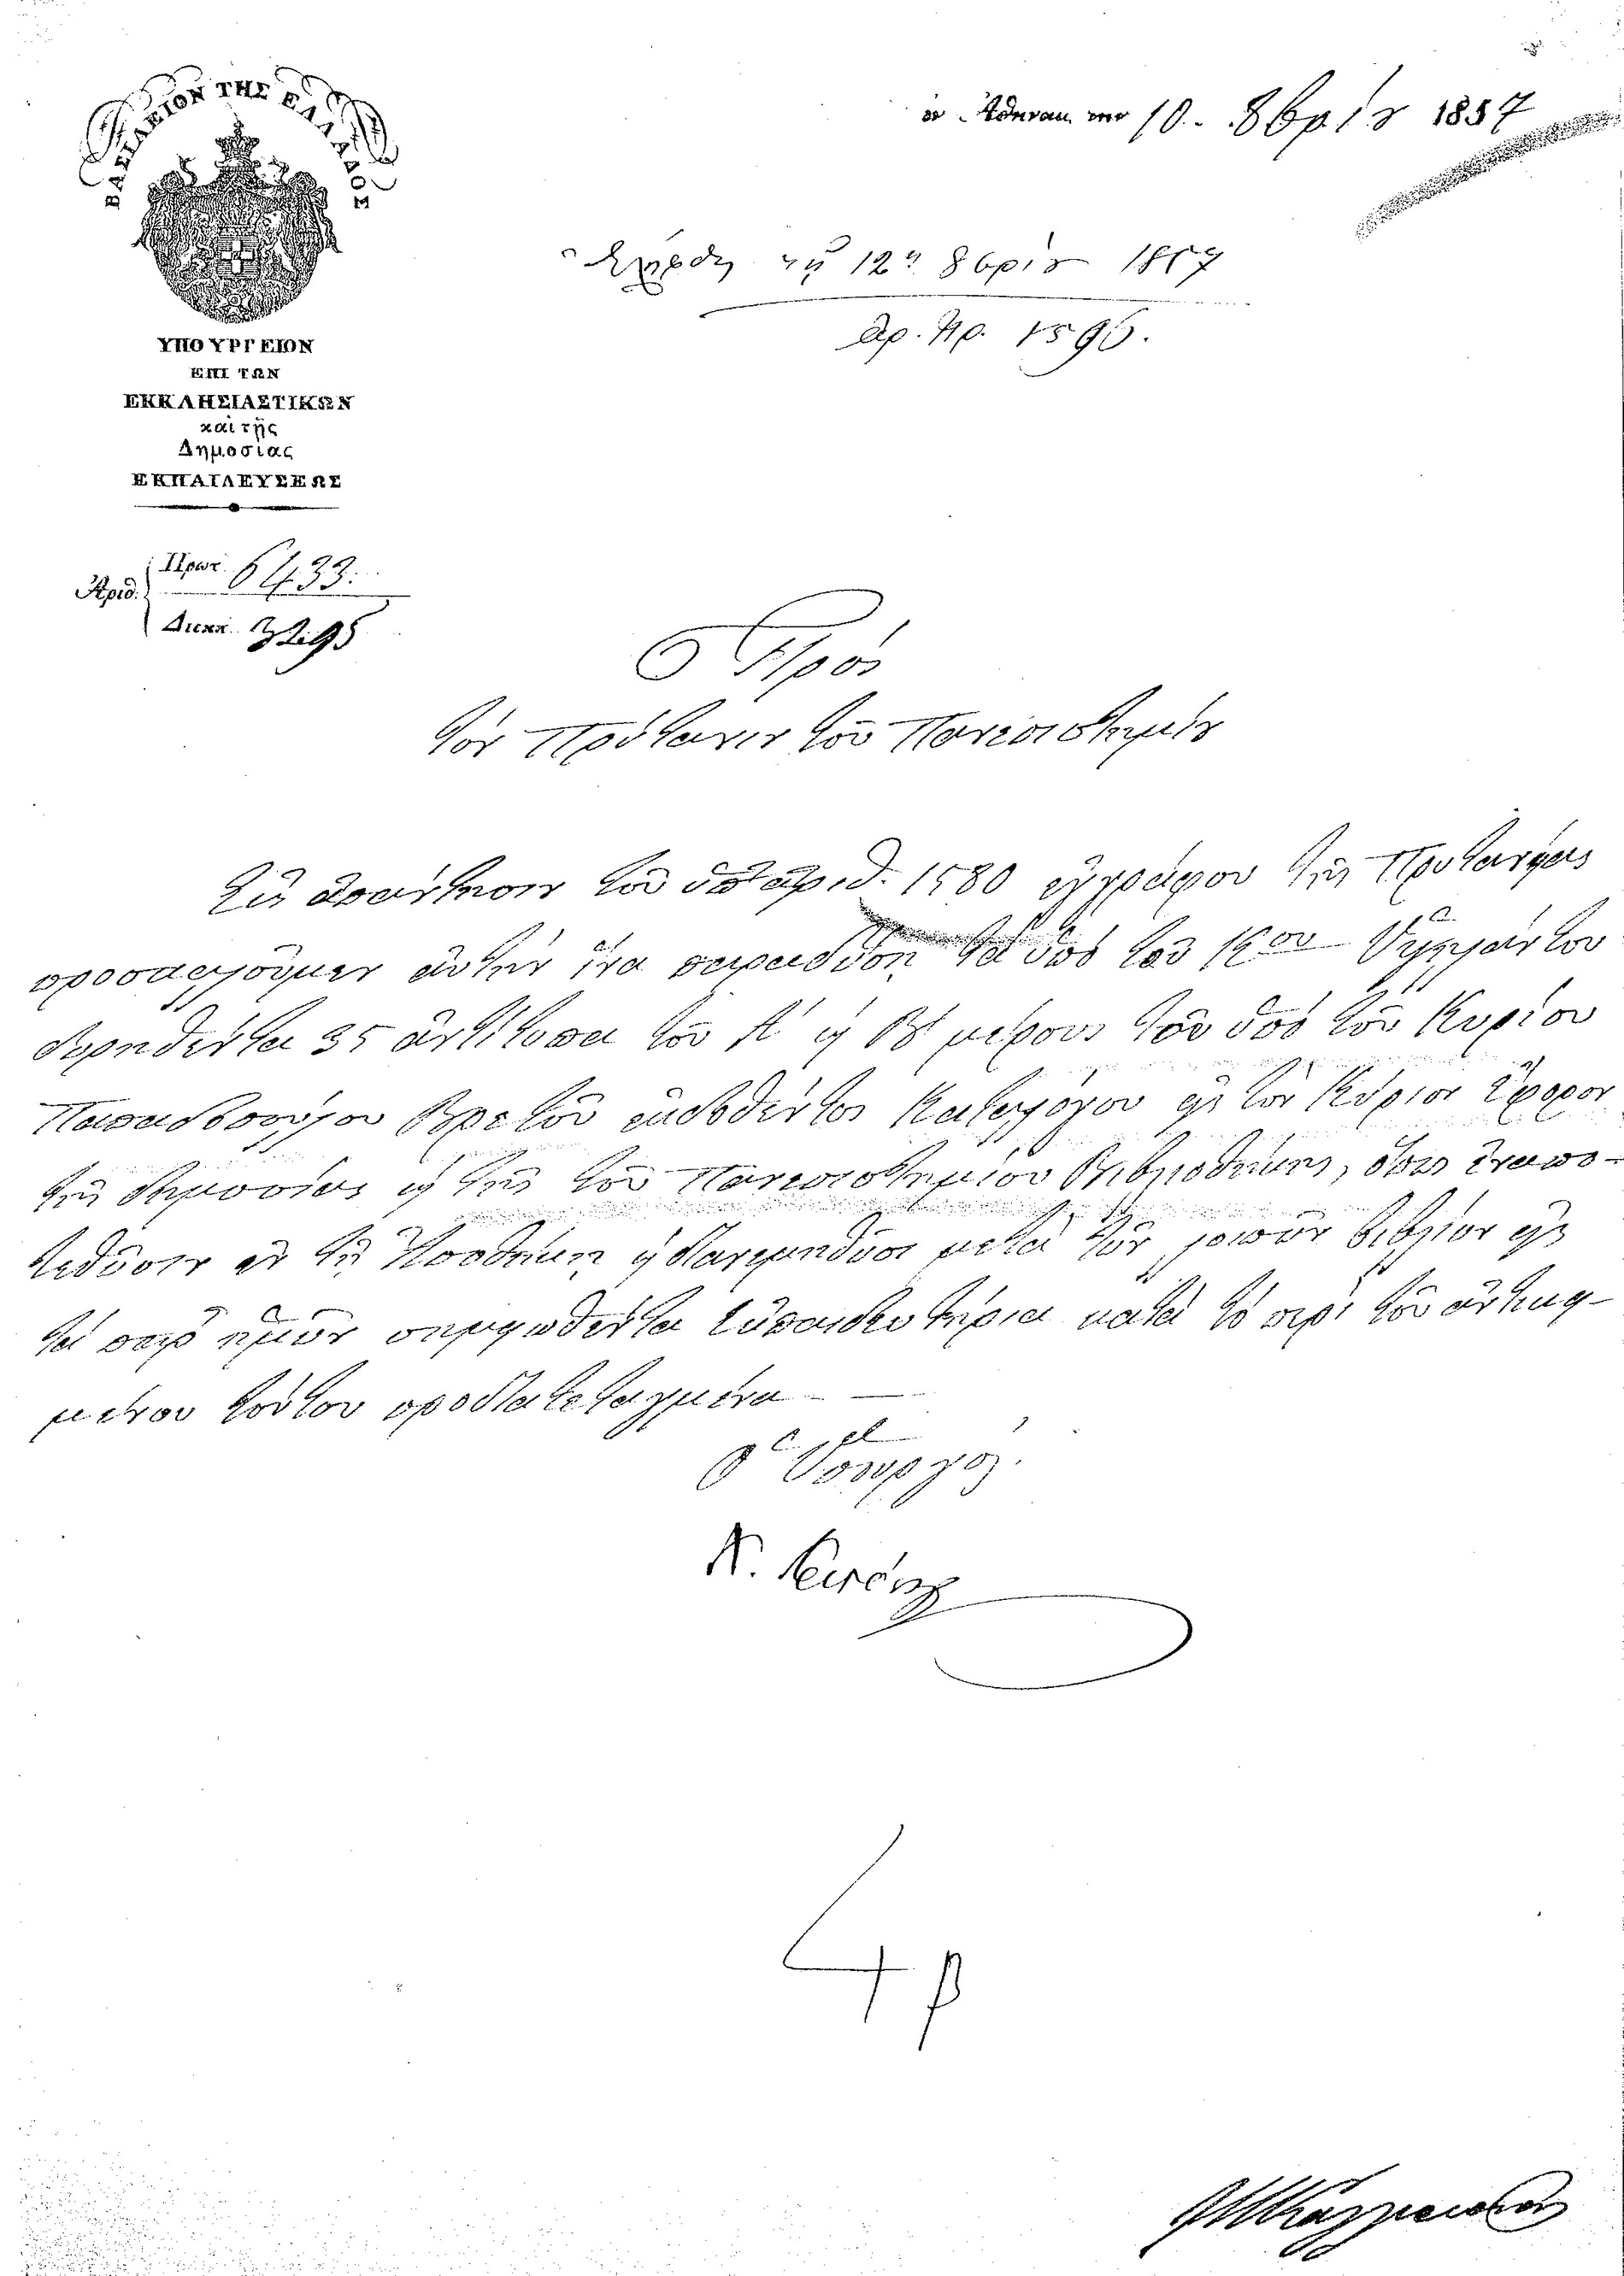 ΒΑΣΙΛΕΙΟΝ ΤΗΣ ΕΛΛΑΔΟΣ
ἐν Ἀθήναις τὴν 10. 8βρίου 1857
ἐλήφθη τῇ 12ῃ 8βρίου 1857
Ἀρ. Πρ. 1596.
ΥΠΟΥΡΓΕΙΟΝ
ΕΠΙ ΤΩΝ
ΕΚΚΛΗΣΙΑΣΤΙΚΩΝ
καὶ τῆς
Δημοσίας
ΕΚΠΑΙΔΕΥΣΕΩΣ
Ἀριθ. Πρωτ. 6433.
Διεκπ.
Πρὸς
τὸν Πρύτανιν τοῦ Πανεπιστημίου
Εἰς ἀπάντησιν τοῦ ὑπ' ἀριθ. 1580 ἐγγράφου τῆς Πρυτανείας
προσκαλοῦμεν αὐτὴν ἵνα τὰ ὑπὸ τοῦ Κου
35 ἀντίτυπα τοῦ Α καὶ Β μέρους τοῦ ὑπὸ τοῦ Κυρίου
Παπαδοπούλου Βρετοῦ ἐκδοθέντος Καταλόγου εἰς τὸν Κύριον Ἔφορον
τῆς δημοσίας καὶ τῆς τοῦ Πανεπιστημίου Βιβλιοθήκης, ὅπως ἐναπο-
τεθῶσιν ἐν τῇ Ἀποθήκῃ καὶ μετὰ τῶν λοιπῶν βιβλίων εἰς
τὰ παρ' ἡμῶν κατὰ τὸ περὶ τοῦ ἀντικει-
μένου τούτου προδιατεταγμένα
Ὁ Ὑπουργὸς.
4 β